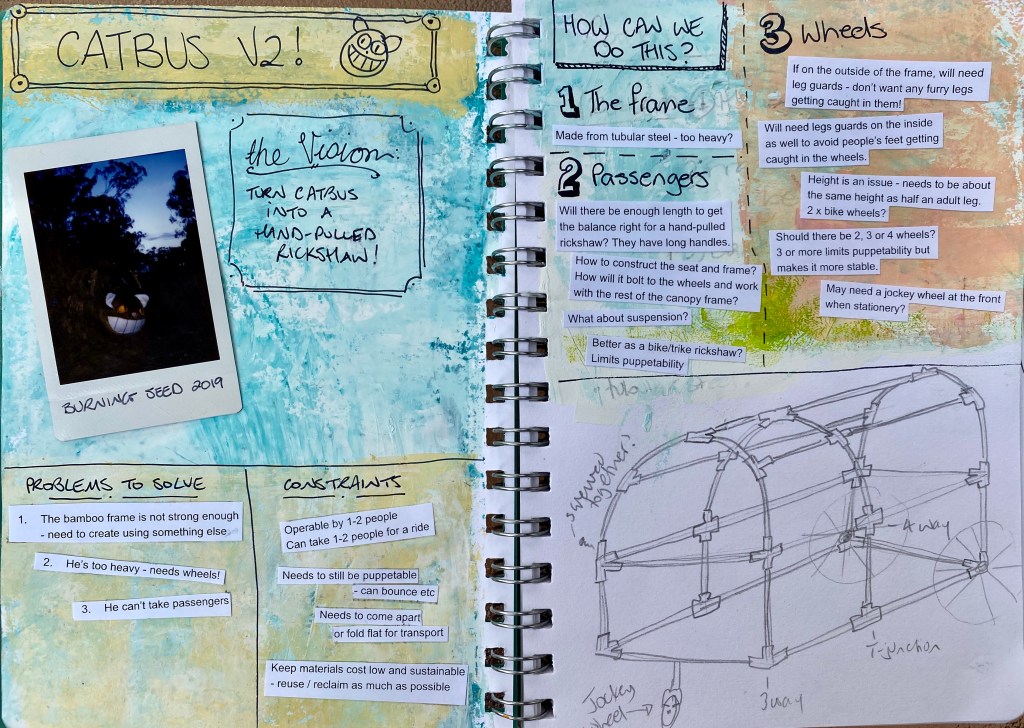 CATBUS V2!
the Vision:
TURN CATBUS
INTO A
HAND-PULLED
RICKSHAW!
BURNING SEED 2019
PROBLEMS TO SOLVE
1. The bamboo frame is not strong enough
- need to create using something else
2. He's too heavy - needs wheels!
3. He can't take passengers
CONSTRAINTS
Operable by 1-2 people
Can take 1-2 people for a ride
Needs to still be puppetable
- can bounce etc
Needs to come apart
or fold flat for transport
Keep materials cost low and sustainable
- reuse / reclaim as much as possible
HOW CAN WE
DO THIS?
1 The frame
Made from tubular steel - too heavy?
2 Passengers
Will there be enough length to get
the balance right for a hand-pulled
rickshaw? They have long handles.
How to construct the seat and frame?
How will it bolt to the wheels and work
with the rest of the canopy frame?
What about suspension?
Better as a bike/trike rickshaw?
Limits puppetability
3 Wheels
If on the outside of the frame, will need
leg guards - don't want any furry legs
getting caught in them!
Will need legs guards on the inside
as well to avoid people's feet getting
caught in the wheels.
Height is an issue - needs to be about
the same height as half an adult leg.
2 x bike wheels?
Should there be 2, 3 or 4 wheels?
3 or more limits puppetability but
makes it more stable.
May need a jockey wheel at the front
when stationery?
together?
4 way
T-junction
3 way
Jockey
wheel